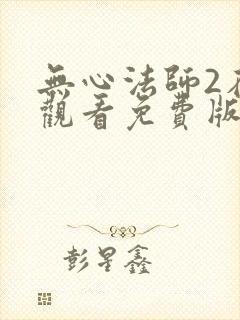 無心法師2
觀看免費版
彭星鑫